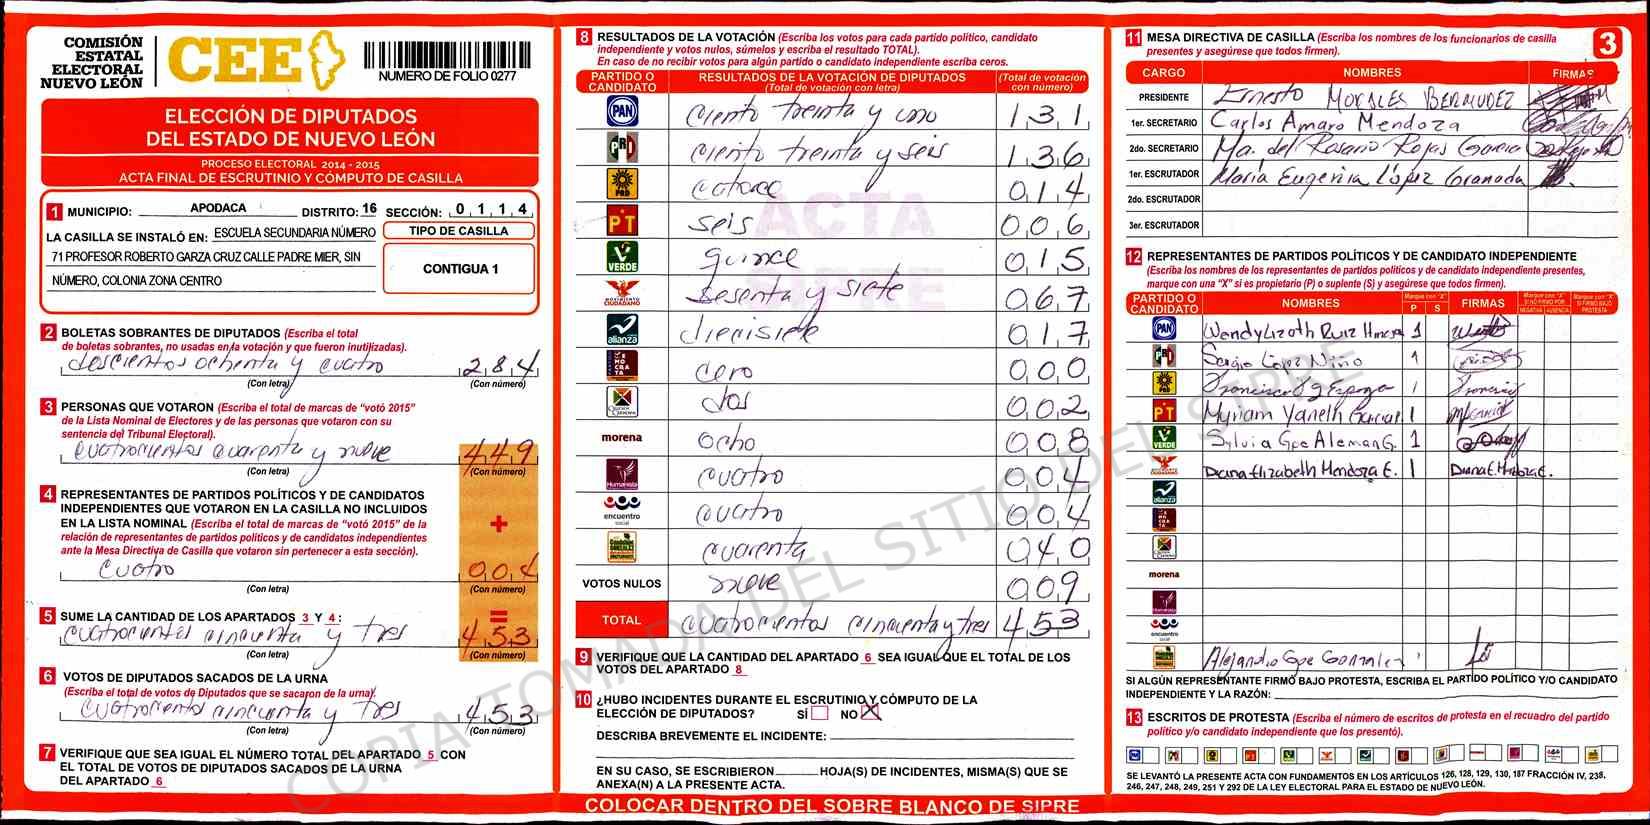 COMISIÓN
ESTATAL
ELECTORAL
NUEVO LEÓN
CEE
NUMERO DE FOLIO 0277
ELECCIÓN DE DIPUTADOS
DEL ESTADO DE NUEVO LEÓN
PROCESO ELECTORAL 2014 - 2015
ACTA FINAL DE ESCRUTINIO Y CÓMPUTO DE CASILLA
1 MUNICIPIO: APODACA DISTRITO: 16 SECCIÓN: 0 1 1 4
LA CASILLA SE INSTALÓ EN: ESCUELA SECUNDARIA NÚMERO
71 PROFESOR ROBERTO GARZA CRUZ CALLE PADRE MIER, SIN
NÚMERO, COLONIA ZONA CENTRO
TIPO DE CASILLA
CONTIGUA 1
2 BOLETAS SOBRANTES DE DIPUTADOS (Escriba el total
de boletas sobrantes, no usadas en la votación y que fueron inutilizadas).
descientos ochenta y cuatro 2 8 4
(Con letra) (Con número)
3 PERSONAS QUE VOTARON (Escriba el total de marcas de “votó 2015”
de la Lista Nominal de Electores y de las personas que votaron con su
sentencia del Tribunal Electoral).
cuatrocientos cuarenta y nueve 4 4 9
(Con letra) (Con número)
4 REPRESENTANTES DE PARTIDOS POLÍTICOS Y DE CANDIDATOS
INDEPENDIENTES QUE VOTARON EN LA CASILLA NO INCLUIDOS
EN LA LISTA NOMINAL (Escriba el total de marcas de “votó 2015” de la
relación de representantes de partidos políticos y de candidatos independientes
ante la Mesa Directiva de Casilla que votaron sin pertenecer a esta sección).
+
cuatro 0 0 4
(Con letra) (Con número)
=
5 SUME LA CANTIDAD DE LOS APARTADOS 3 Y 4:
cuatrocientos cincuenta y tres 4 5 3
(Con letra) (Con número)
6 VOTOS DE DIPUTADOS SACADOS DE LA URNA
(Escriba el total de votos de Diputados que se sacaron de la urna).
cuatrocientos cincuenta y tres 4 5 3
(Con letra) (Con número)
7 VERIFIQUE QUE SEA IGUAL EL NÚMERO TOTAL DEL APARTADO 5 CON
EL TOTAL DE VOTOS DE DIPUTADOS SACADOS DE LA URNA
DEL APARTADO 6
8 RESULTADOS DE LA VOTACIÓN (Escriba los votos para cada partido político, candidato
independiente y votos nulos, súmelos y escriba el resultado TOTAL).
En caso de no recibir votos para algún partido o candidato independiente escriba ceros.
PARTIDO O CANDIDATO RESULTADOS DE LA VOTACIÓN DE DIPUTADOS (Total de votación con letra) (Total de votación con número)
PAN ciento treinta y uno 1 3 1
PRI ciento treinta y seis 1 3 6
PRD catorce 0 1 4
PT seis 0 0 6
VERDE quince 0 1 5
MOVIMIENTO CIUDADANO sesenta y siete 0 6 7
alianza diecisiete 0 1 7
DEMOCRATA cero 0 0 0
dos 0 0 2
morena ocho 0 0 8
Humanista cuatro 0 0 4
encuentro social cuatro 0 0 4
cuarenta 0 4 0
VOTOS NULOS nueve 0 0 9
TOTAL cuatrocientos cincuenta y tres 4 5 3
ACTA
SIPRE
9 VERIFIQUE QUE LA CANTIDAD DEL APARTADO 6 SEA IGUAL QUE EL TOTAL DE LOS
VOTOS DEL APARTADO 8
10 ¿HUBO INCIDENTES DURANTE EL ESCRUTINIO Y CÓMPUTO DE LA
ELECCIÓN DE DIPUTADOS? SÍ NO X
DESCRIBA BREVEMENTE EL INCIDENTE:
EN SU CASO, SE ESCRIBIERON HOJA(S) DE INCIDENTES, MISMA(S) QUE SE
ANEXA(N) A LA PRESENTE ACTA.
COLOCAR DENTRO DEL SOBRE BLANCO DE SIPRE
11 MESA DIRECTIVA DE CASILLA (Escriba los nombres de los funcionarios de casilla
presentes y asegúrese que todos firmen).
3
CARGO NOMBRES FIRMAS
PRESIDENTE Ernesto MORALES BERMUDEZ
1er. SECRETARIO Carlos Amaro Mendoza
2do. SECRETARIO Ma. del Rosario Rojas Garcia
1er. ESCRUTADOR María Eugenia López Granada
2do. ESCRUTADOR
3er. ESCRUTADOR
12 REPRESENTANTES DE PARTIDOS POLÍTICOS Y DE CANDIDATO INDEPENDIENTE
(Escriba los nombres de los representantes de partidos políticos y de candidato independiente presentes,
marque con una “X” si es propietario (P) o suplente (S) y asegúrese que todos firmen).
PARTIDO O CANDIDATO NOMBRES Marque con “X” P S FIRMAS Marque con “X” SI NO FIRMÓ POR: NEGATIVA AUSENCIA Marque con “X” SI FIRMÓ BAJO PROTESTA
PAN Wendy Lizeth Ruiz 1
PRI Sergio López Niño 1
PRD Francisco 1
PT Myriam Yaneth 1
VERDE Sylvia Gpe Aleman G. 1
Diana Elizabeth Mendoza E. 1 Diana E. Mendoza E.
alianza
morena
encuentro social
Alejandro Gpe Gonzalez 1
SI ALGÚN REPRESENTANTE FIRMÓ BAJO PROTESTA, ESCRIBA EL PARTIDO POLÍTICO Y/O CANDIDATO
INDEPENDIENTE Y LA RAZÓN:
13 ESCRITOS DE PROTESTA (Escriba el número de escritos de protesta en el recuadro del partido
político y/o candidato independiente que los presentó).
SE LEVANTÓ LA PRESENTE ACTA CON FUNDAMENTOS EN LOS ARTÍCULOS 126, 128, 129, 130, 187 FRACCIÓN IV, 238,
246, 247, 248, 249, 251 Y 292 DE LA LEY ELECTORAL PARA EL ESTADO DE NUEVO LEÓN.
COPIA TOMADA DEL SITIO DEL SIPRE